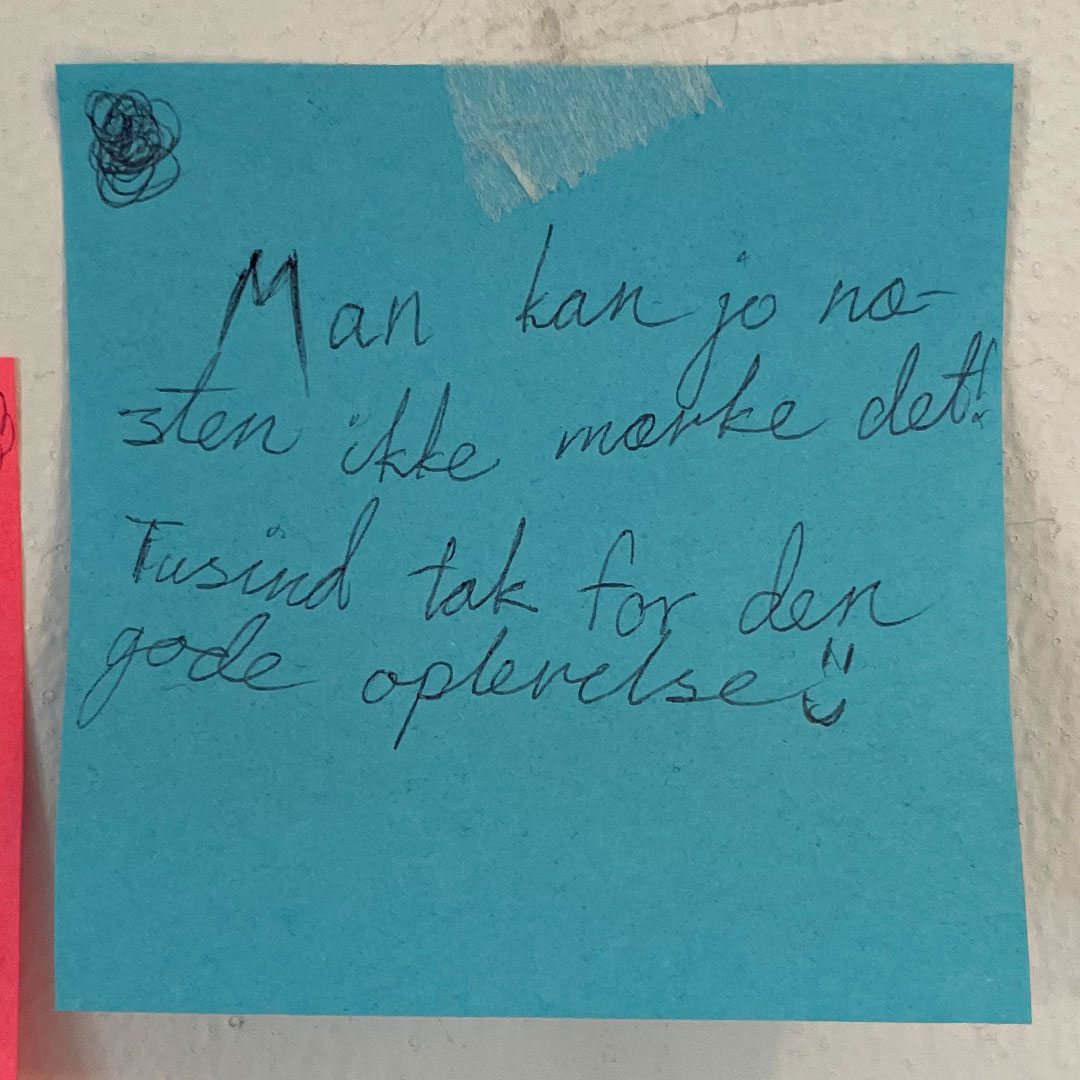 Man kan jo næ-
sten ikke mærke det!
Tusind tak for den
gode oplevelse